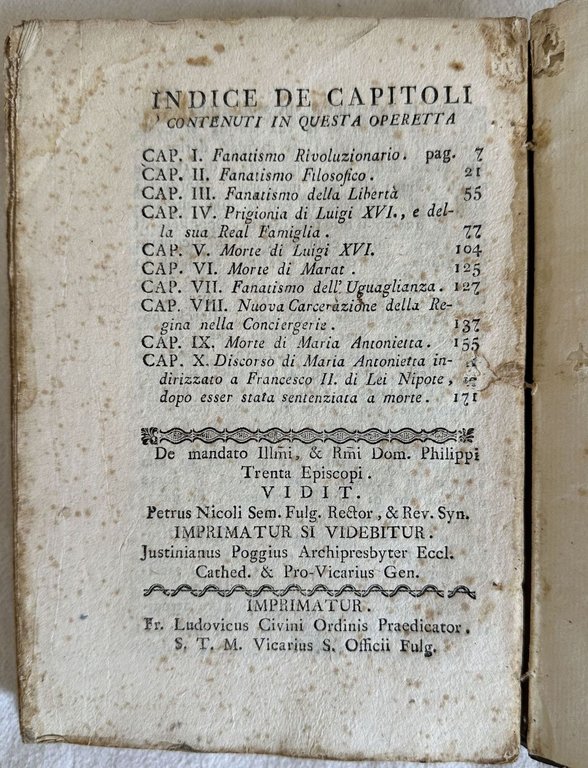 INDICE DE CAPITOLI
CONTENUTI IN QUESTA OPERETTA
CAP. I. Fanatismo Rivoluzionario. pag. 7
CAP. II. Fanatismo Filosofico. 21
CAP. III. Fanatismo della Libertà 55
CAP. IV. Prigionia di Luigi XVI., e del-
la sua Real Famiglia. 77
CAP. V. Morte di Luigi XVI. 104
CAP. VI. Morte di Marat. 125
CAP. VII. Fanatismo dell' Uguaglianza. 127
CAP. VIII. Nuova Carcerazione della Re-
gina nella Conciergerie. 137
CAP. IX. Morte di Maria Antonietta. 155
CAP. X. Discorso di Maria Antonietta in-
dirizzato a Francesco II. di Lei Nipote,
dopo esser stata sentenziata a morte. 171
De mandato Illm̃i, & Rm̃i Dom. Philippi
Trenta Episcopi.
VIDIT.
Petrus Nicoli Sem. Fulg. Rector, & Rev. Syn.
IMPRIMATUR SI VIDEBITUR.
Justinianus Poggius Archipresbyter Eccl.
Cathed. & Pro-Vicarius Gen.
IMPRIMATUR.
Fr. Ludovicus Civini Ordinis Praedicator.
S. T. M. Vicarius S. Officii Fulg.